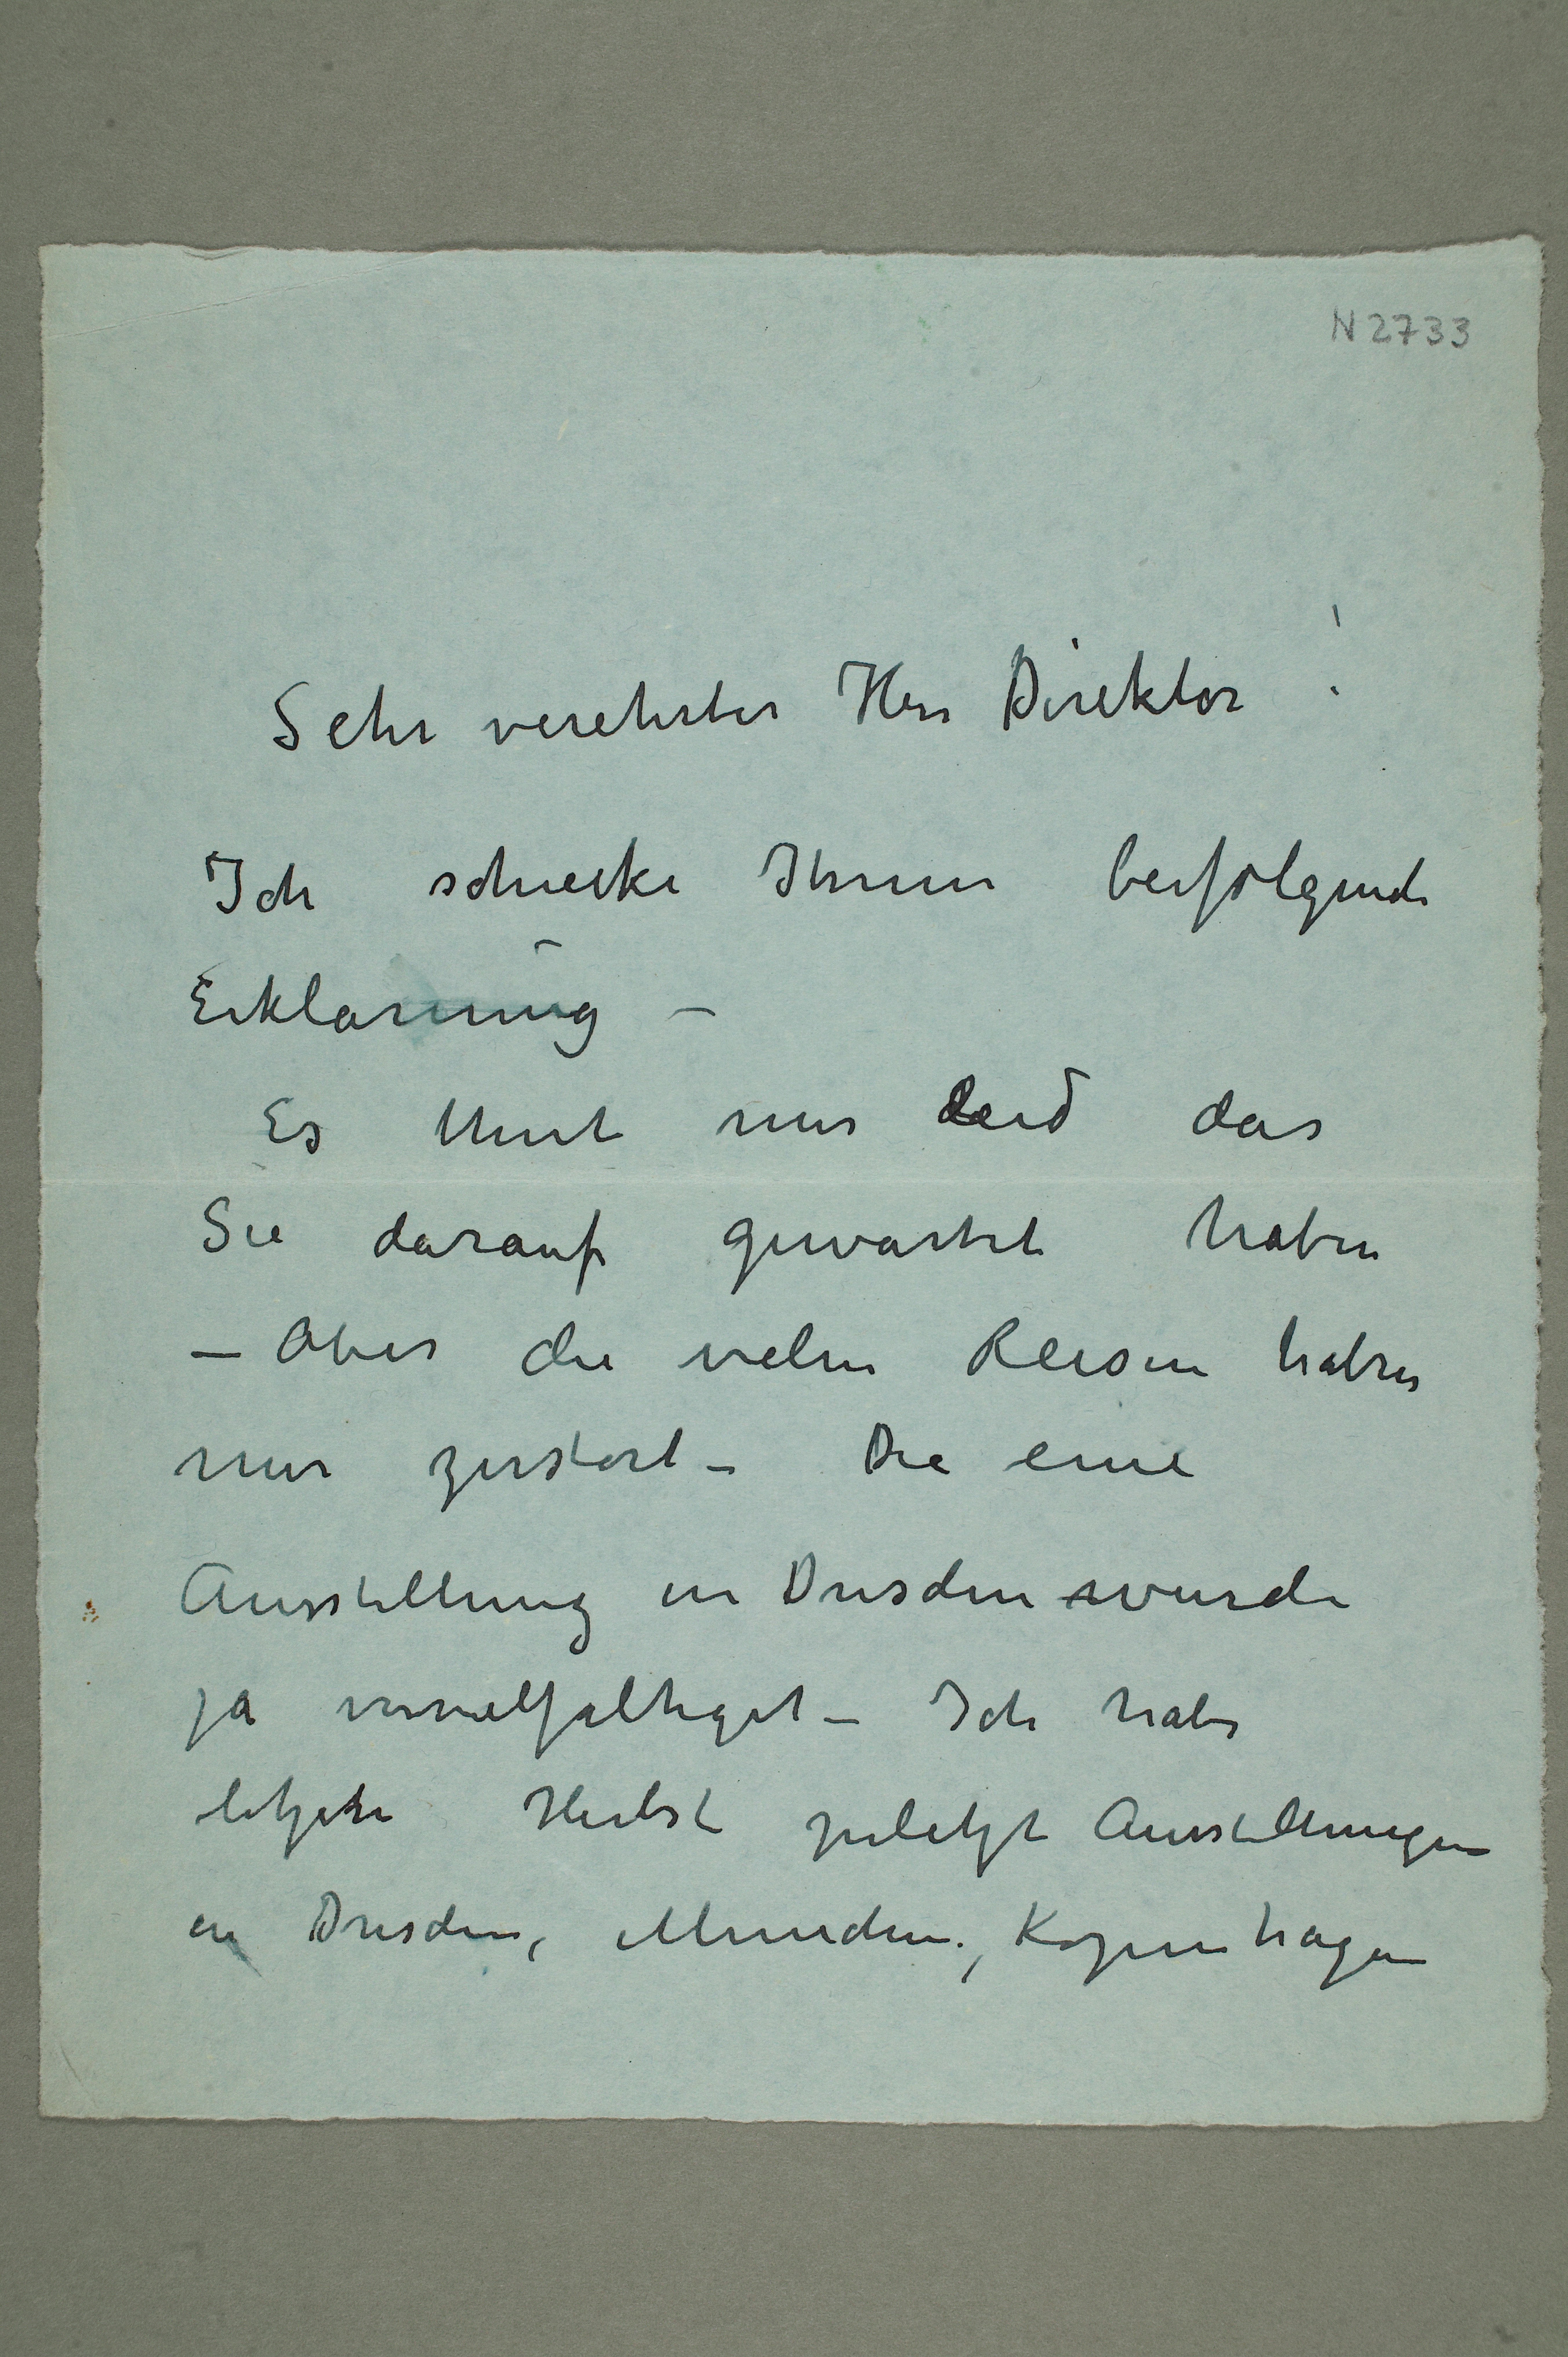 N 2733
Sehr verehrter Herr Direktor!
Ich schicke Ihnen beifolgende
Erklarung –
Es thut mir leid das
Sie darauf gewartet haben
– Aber die vielen Reisen haben
mir zerstört – Die eine
Ausstellung in Dresden wurde
ja vervielfaltiget – Ich habe
letzten Herbst zuletzt Ausstellungen
in Dresden, Munchen, Kopenhagen